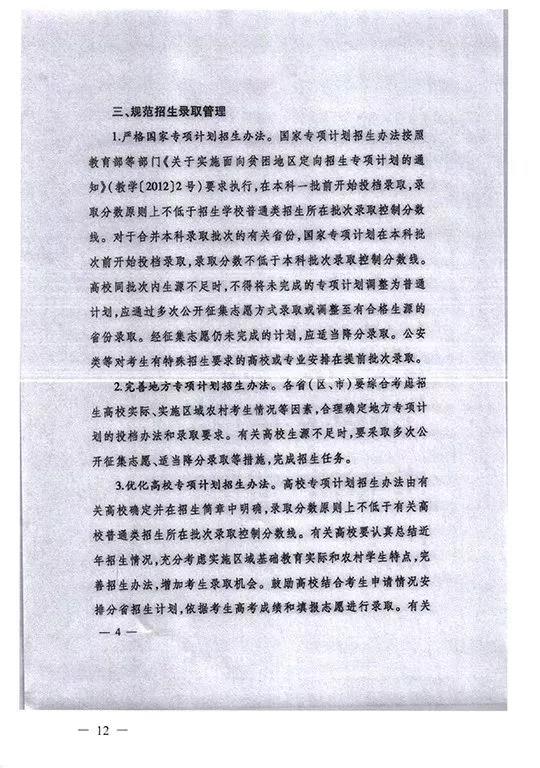 三、规范招生录取管理
1.严格国家专项计划招生办法。国家专项计划招生办法按照
教育部等部门《关于实施面向贫困地区定向招生专项计划的通
知》(教学〔2012〕2号)要求执行,在本科一批前开始投档录取,录
取分数原则上不低于招生学校普通类招生所在批次录取控制分数
线。对于合并本科录取批次的有关省份,国家专项计划在本科批
次前开始投档录取,录取分数不低于本科批次录取控制分数线。
高校同批次内生源不足时,不得将未完成的专项计划调整为普通
计划,应通过多次公开征集志愿方式录取或调整至有合格生源的
省份录取。经征集志愿仍未完成的计划,应适当降分录取。公安
类等对考生有特殊招生要求的高校或专业安排在提前批次录取。
2.完善地方专项计划招生办法。各省(区、市)要综合考虑招
生高校实际、实施区域农村考生情况等因素,合理确定地方专项计
划的投档办法和录取要求。有关高校生源不足时,要采取多次公
开征集志愿、适当降分录取等措施,完成招生任务。
3.优化高校专项计划招生办法。高校专项计划招生办法由有
关高校确定并在招生简章中明确,录取分数原则上不低于有关高
校普通类招生所在批次录取控制分数线。有关高校要认真总结近
年招生情况,充分考虑实施区域基础教育实际和农村学生特点,完
善招生办法,增加考生录取机会。鼓励高校结合考生申请情况安
排分省招生计划,依据考生高考成绩和填报志愿进行录取。有关
— 4 —
— 12 —